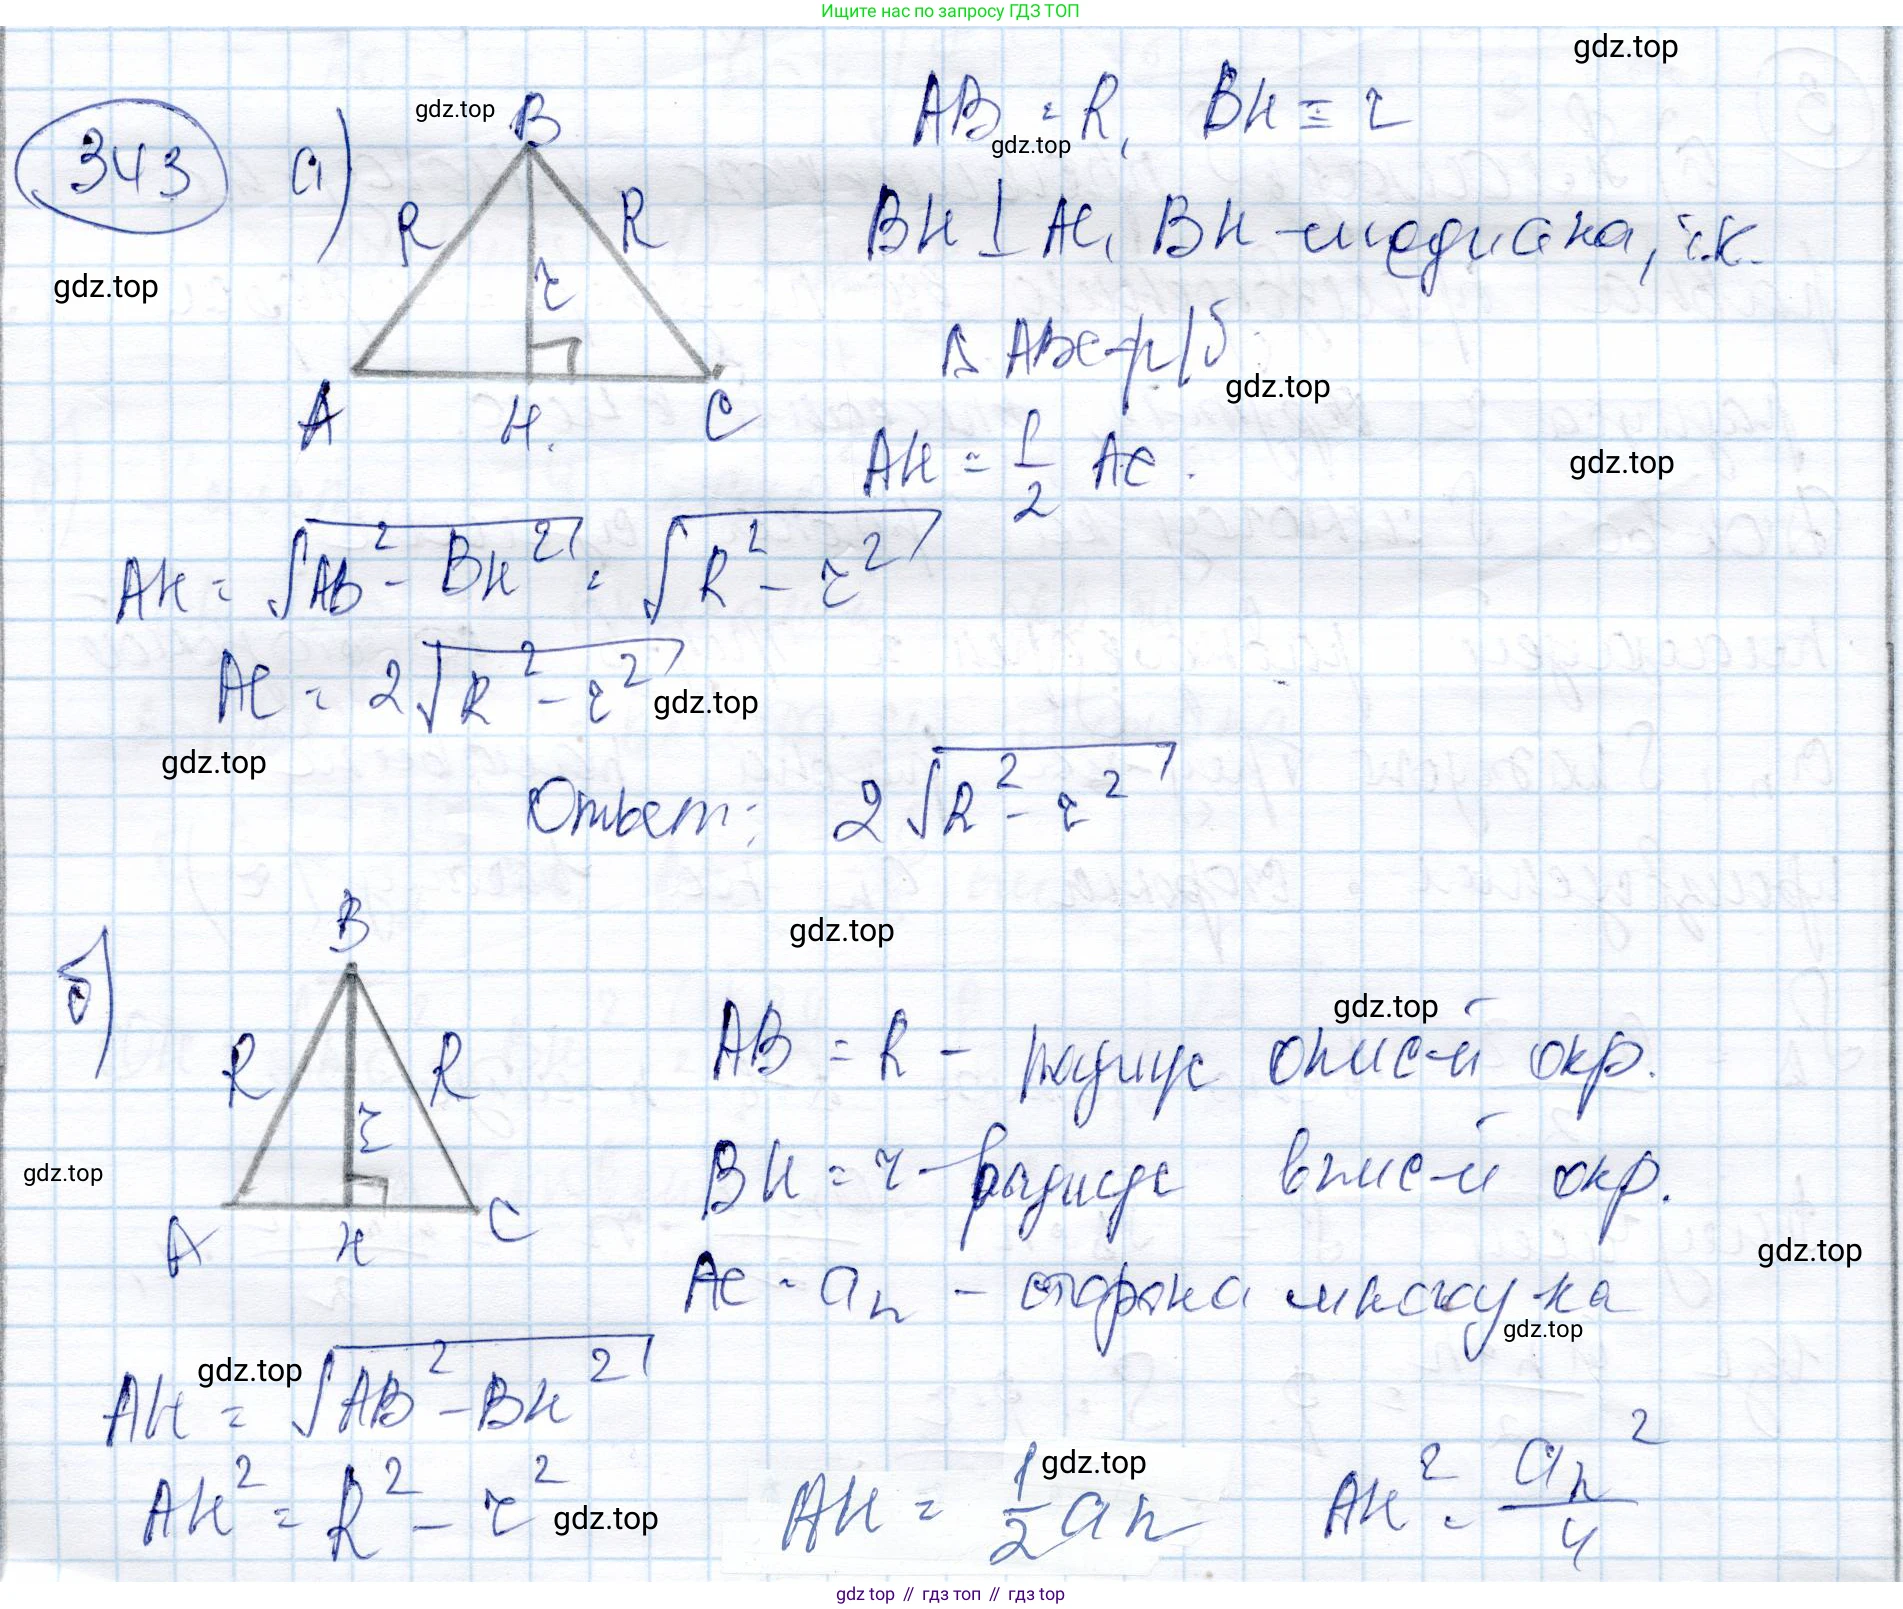 Ищите нас по запросу ГДЗ ТОП
gdz.top
343 а)
gdz.top
B
R
R
r
A
H.
C
AB = R, BH = r
gdz.top
BH ⊥ AC, BH - медиана, т.к.
gdz.top
Δ ABC - р/б
gdz.top
AH = 1/2 AC.
gdz.top
AH = √(AB² - BH²) = √(R² - r²)
AC = 2√(R² - r²)
gdz.top
gdz.top
Ответ: 2√(R² - r²)
б)
B
R
R
r
A
H
C
gdz.top
gdz.top
AB = R - радиус опис-й окр.
BH = r - радиус впис-й окр.
gdz.top
gdz.top
AC = aₙ - сторона многоу-ка
gdz.top
gdz.top
AH = √(AB² - BH²)
AH² = R² - r²
gdz.top
gdz.top
AH = 1/2 aₙ
AH² = aₙ²/4
gdz.top // гдз топ // гдз top